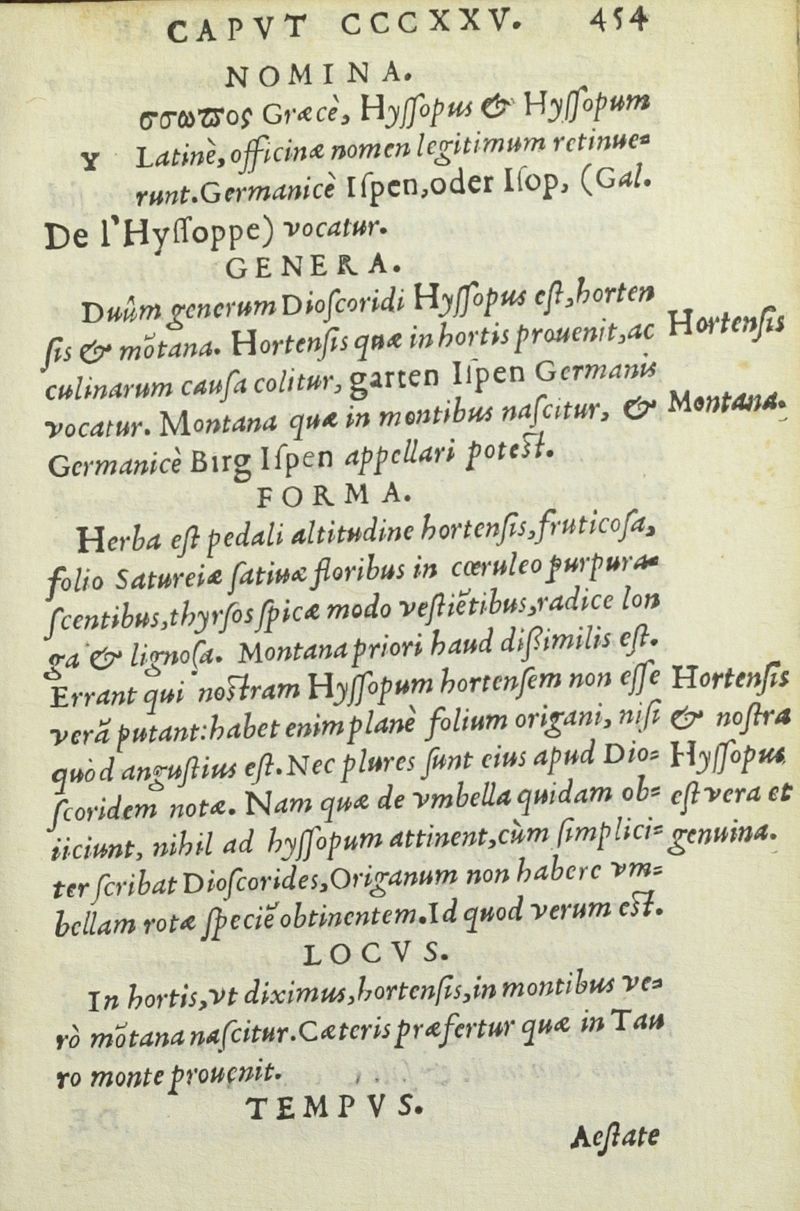 CAPVT CCCXXV. 454
NOMINA.
σσωπος Græcè, Hyſſopus & Hyſſopum
Υ Latinè, officinæ nomen legitimum retinue=
runt. Germanicè Iſpen, oder Iſop, (Gal.
De l'Hyſſoppe) vocatur.
GENERA.
Duûm generum Dioſcoridi Hyſſopus eſt, horten
ſis & mõtana. Hortenſis quæ in hortis prouenit, ac
Hortenſis
culinarum cauſa colitur, garten Iſpen Germanis
vocatur. Montana quæ in montibus naſcitur, &
Montana.
Germanicè Birg Iſpen appellari poteſt.
FORMA.
Herba eſt pedali altitudine hortenſis, fruticoſa,
folio Satureiæ ſatiuæ floribus in cœruleo purpura=
ſcentibus, thyrſos ſpicæ modo veſtiẽtibus, radice lon
ga & lignoſa. Montana priori haud dißimilis eſt.
Errant qui noſtram Hyſſopum hortenſem non eſſe
Hortenſis
verã putant: habet enim planè folium origani, niſi
& noſtra
quòd anguſtius eſt. Nec plures ſunt eius apud Dio=
Hyſſopus
ſcoridem notæ. Nam quæ de vmbella quidam ob=
eſt vera et
iiciunt, nihil ad hyſſopum attinent, cùm ſimplici=
genuina.
ter ſcribat Dioſcorides, Origanum non habere vm=
bellam rotæ ſpeciẽ obtinentem. Id quod verum eſt.
LOCVS.
In hortis, vt diximus, hortenſis, in montibus ve=
rò mõtana naſcitur. Cæteris præfertur quæ in Tau
ro monte prouenit.
TEMPVS.
Aeſtate